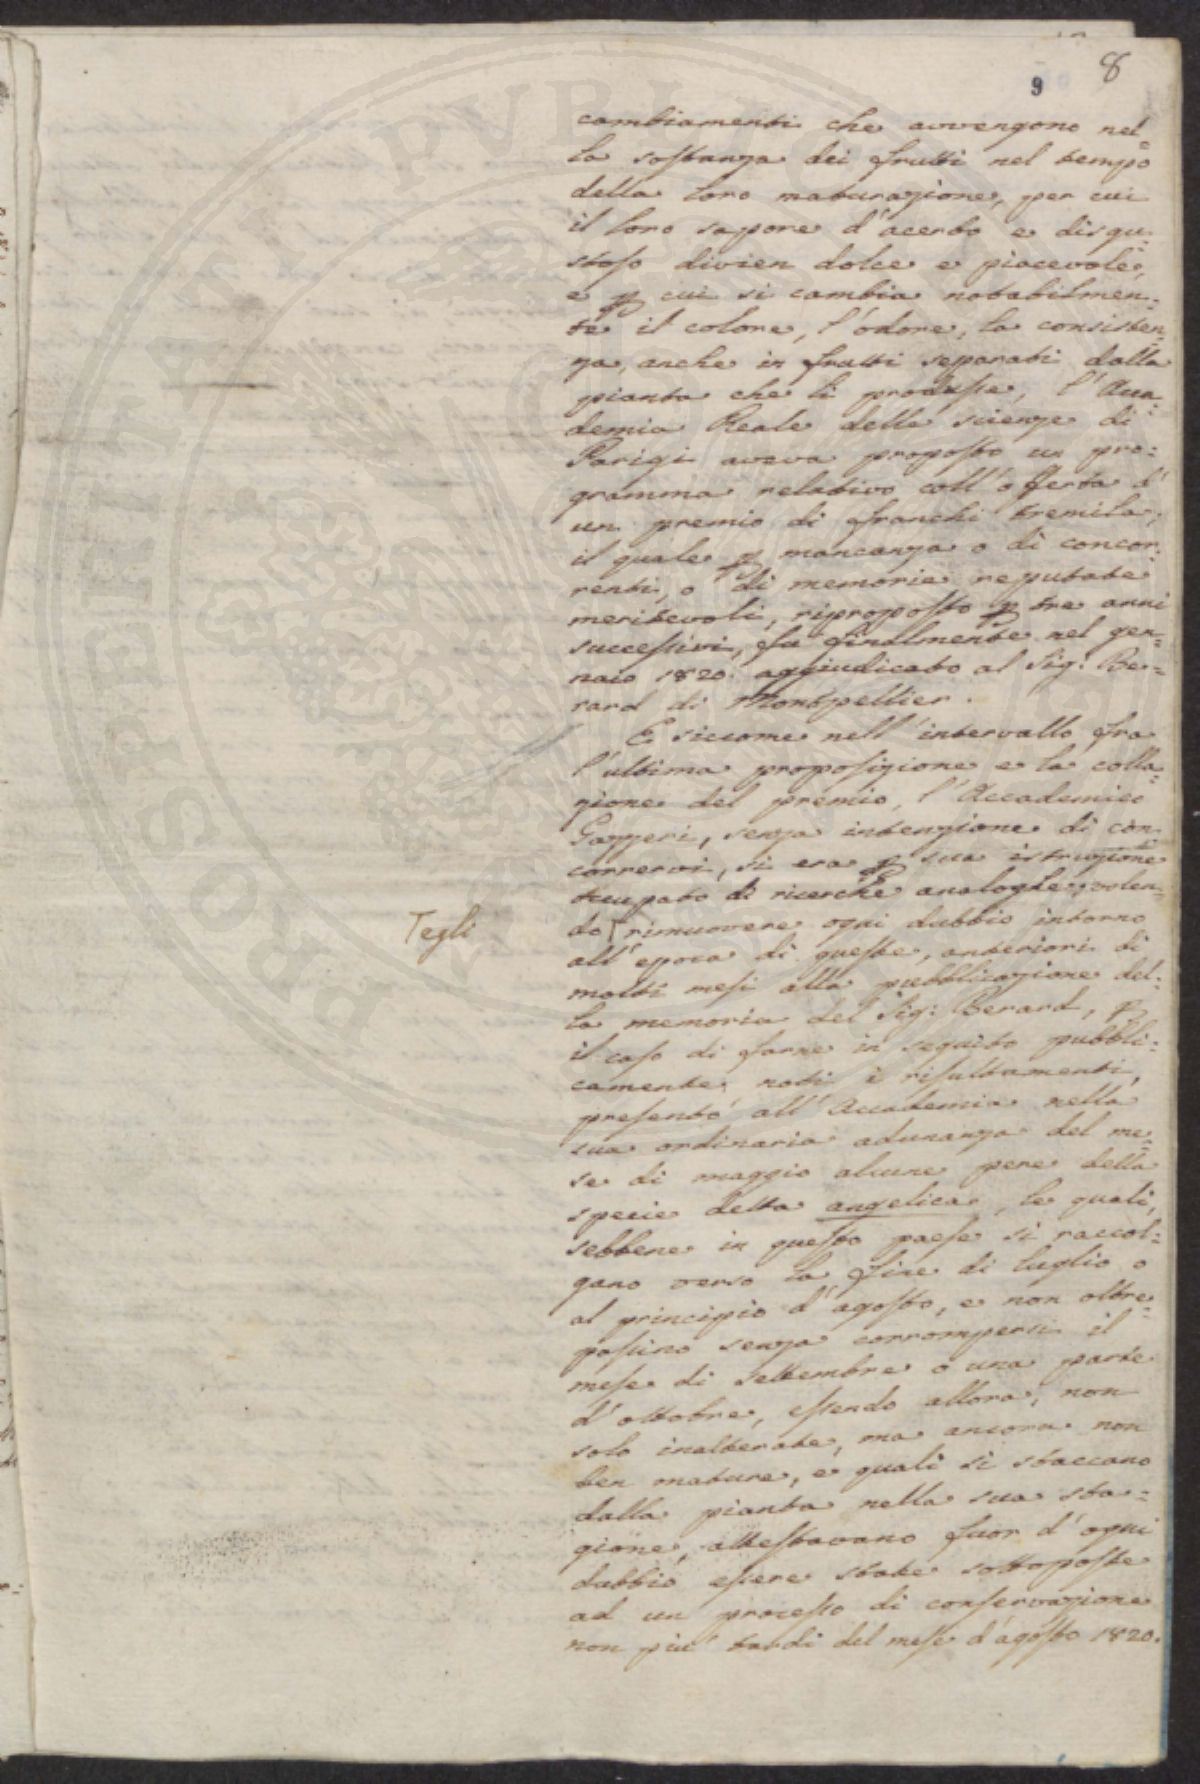 8
9
cambiamenti che avvengono nel=
la sostanza dei frutti nel tempo
della loro maturazione, per cui
il loro sapore d'acerbo e disgu=
stoso divien dolce e piacevole,
e p cui si cambia notabilmen=
te il colore, l'odore, la consisten=
za, anche in frutti separati dalla
pianta che li produsse, l'Acca=
demia Reale delle scienze di
Parigi aveva proposto un pro=
gramma relativo coll'offerta d'
un premio di franchi tremila,
il quale p mancanza o di concor=
renti, o di memorie reputate
meritevoli, riproposto p tre anni
successivi, fu finalmente nel gen=
naio 1820. aggiudicato al Sig: Be=
rard di Montpellier.
E siccome nell'intervallo fra
l'ultima proposizione e la colla=
zione del premio, l'Accademico
Gazzeri, senza intenzione di con=
corrervi, si era p sua istruzione
occupato di ricerche analoghe, volen=
do Γ rimuovere ogni dubbio intorno
Γ egli
all'epoca di queste, anteriori di
molti mesi alla pubblicazione del=
la memoria del Sig: Berard, p
il caso di farne in seguito pubbli=
camente noti i risultamenti,
presentò all'Accademia nella
sua ordinaria adunanza del me=
se di maggio alcune pere della
specie detta angelica, le quali,
sebbene in questo paese si raccol=
gano verso la fine di luglio o
al principio d'agosto, e non oltre=
passino senza corrompersi il
mese di settembre o una parte
d'ottobre, essendo allora, non
solo inalterate, ma ancora non
ben mature, e quali si staccano
dalla pianta nella sua sta=
gione, attestavano fuor d'ogni
dubbio essere state sottoposte
ad un processo di conservazione
non più tardi del mese d'agosto 1820.